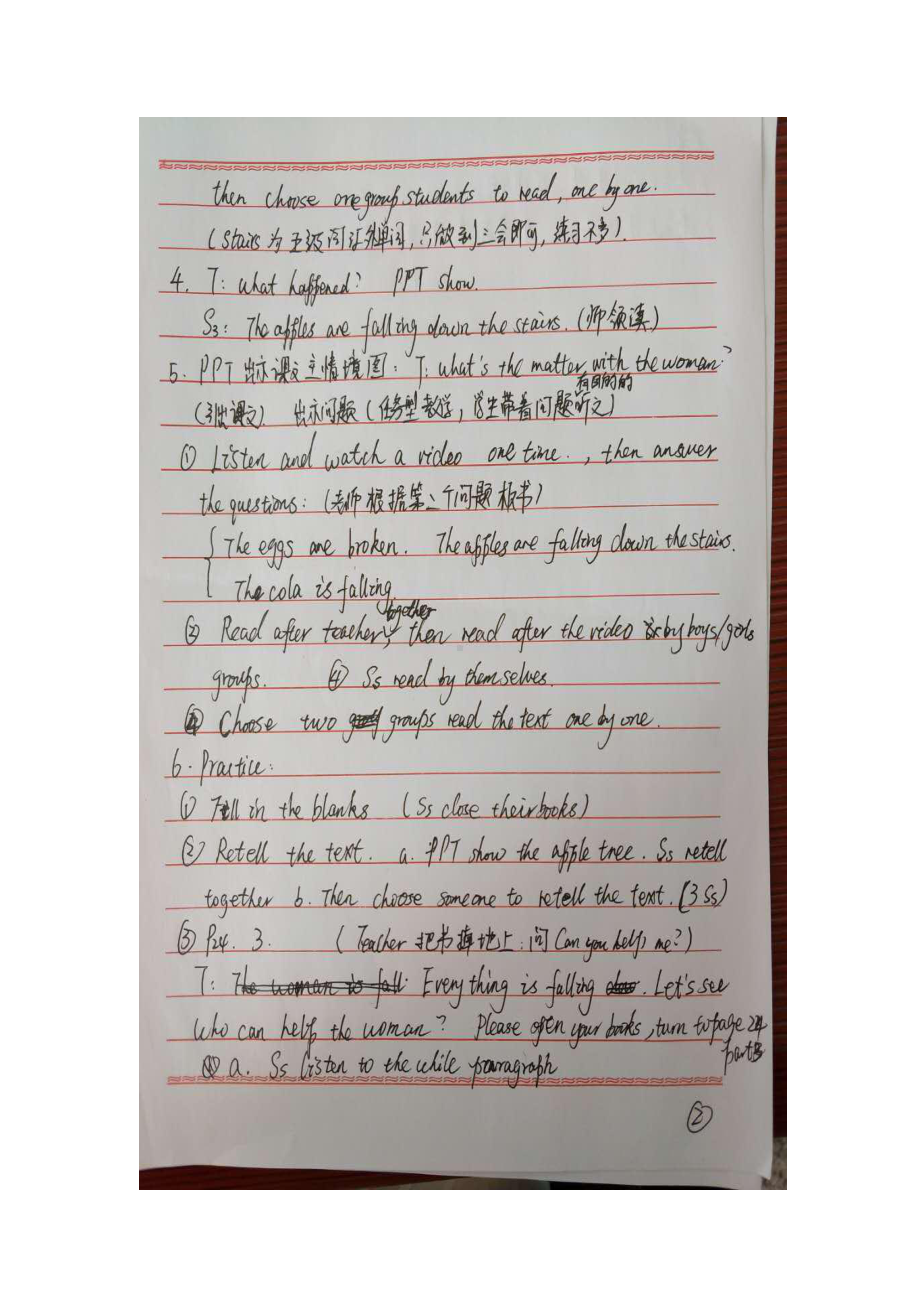 then choose one group students to read, one by one.
(stairs为五级词汇外单词,只做到三会即可,练习不多).
4. T: what happened? PPT show.
S3: The apples are falling down the stairs. (师领读)
5. PPT出示课文主情境图: T: what's the matter with the woman?
有目的的
(引出课文). 出示问题(任务型教学,学生带着问题听文)
① Listen and watch a video one time., then answer
the questions: (老师根据第二个问题板书)
The eggs are broken. The apples are falling down the stairs.
The cola is falling.
together
② Read after teacher, then read after the video by boys/girls
groups. ④ Ss read by themselves.
④ Choose two groups read the text one by one.
6. Practice:
① Fill in the blanks (Ss close their books)
② Retell the text. a. PPT show the apple tree. Ss retell
together b. Then choose someone to retell the text. (3 Ss)
③ P24. 3. (Teacher把书掉地上:问Can you help me?)
T: The woman is fall: Every thing is falling. Let's see
who can help the woman? Please open your books, turn to page 24
part3
a. Ss listen to the while paragraph
②